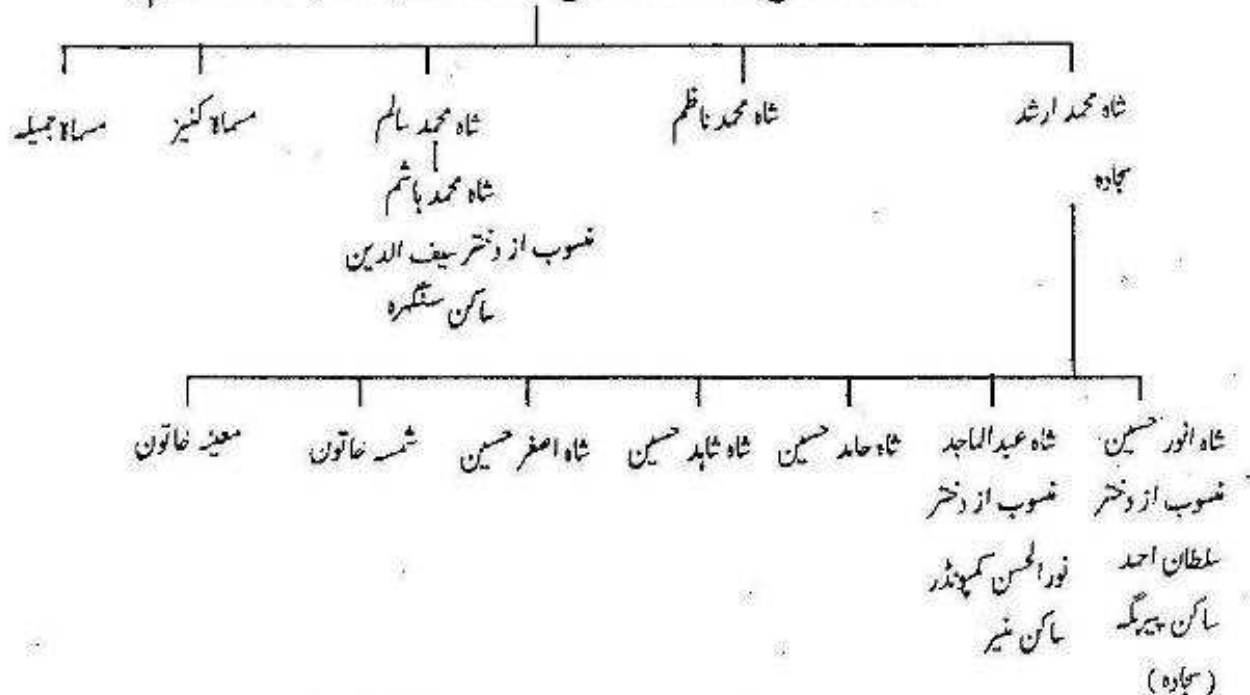 شاہ محمد ارشد
سجادہ
شاہ محمد ناظم
شاہ محمد سالم
شاہ محمد ہاشم
منسوب از دختر سیف الدین
ساکن سنگھرہ
مسماۃ کنیز
مسماۃ جمیلہ
شاہ انور حسین
منسوب از دختر
سلطان احمد
ساکن پیربگہ
(سجادہ)
شاہ عبدالماجد
منسوب از دختر
نورالحسن کمپونڈر
ساکن منیر
شاہ حامد حسین
شاہ شاہد حسین
شاہ اصغر حسین
شمسہ خاتون
معینہ خاتون